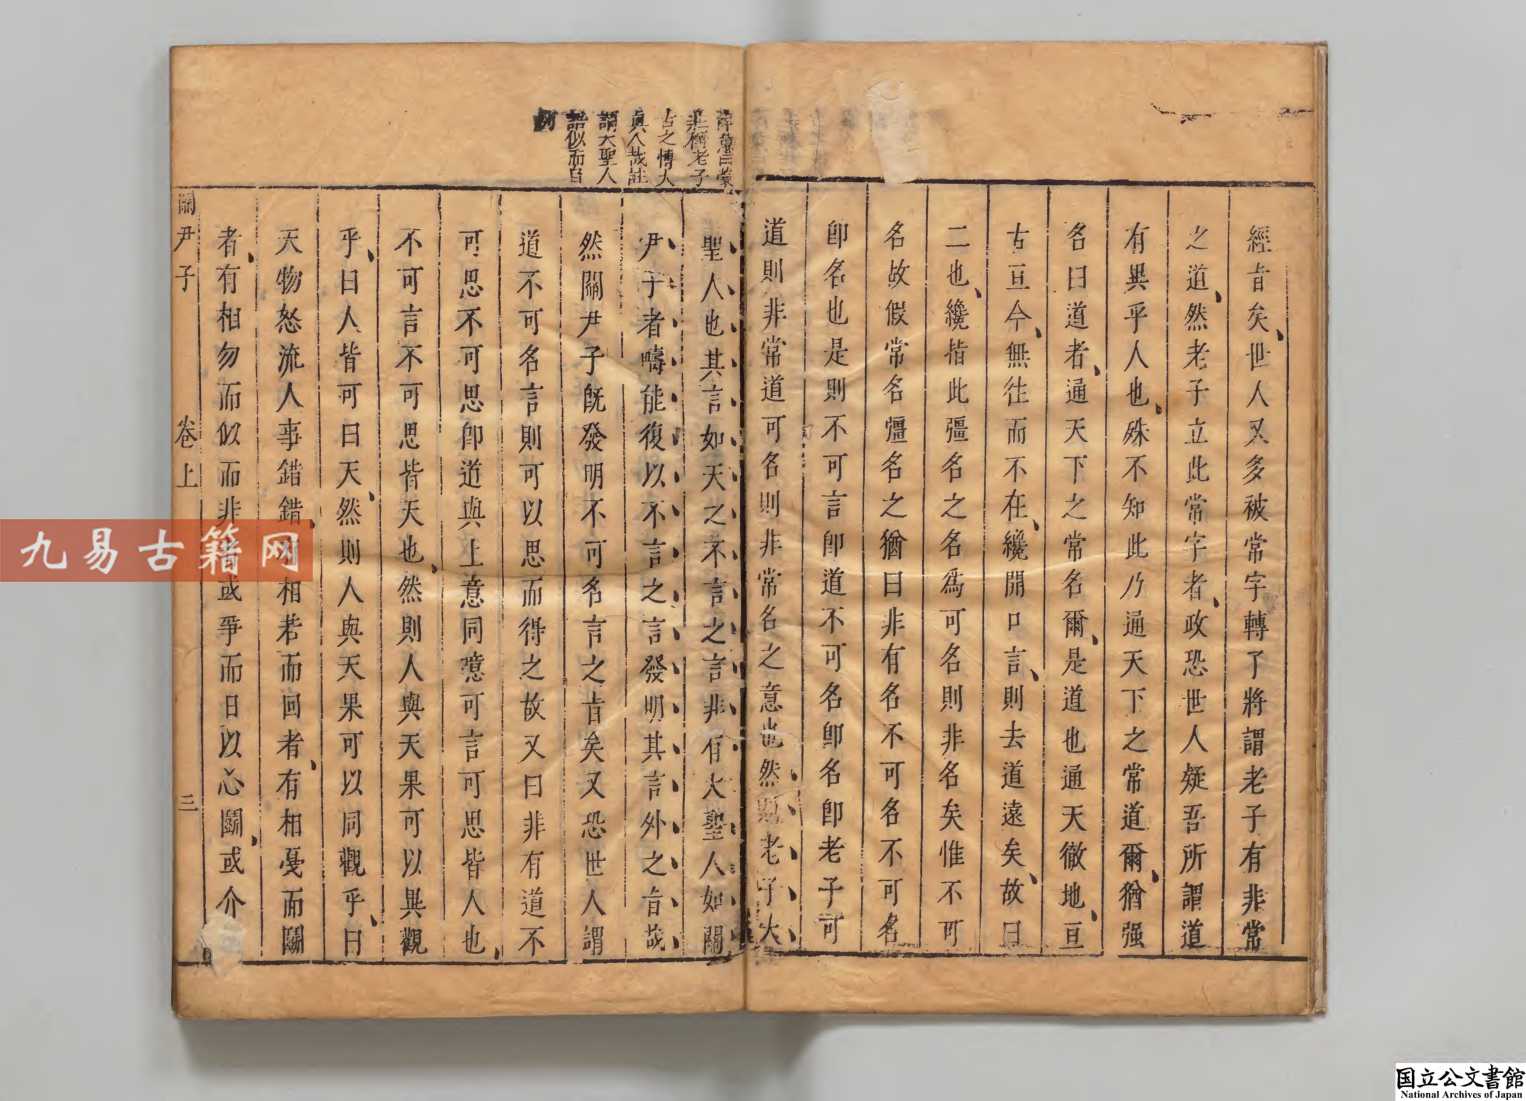 經旨矣世人又多被常字轉了將謂老子有非常
之道然老子立此常字者政恐世人疑吾所謂道
有異乎人也殊不知此乃通天下之常道爾猶强
名曰道者通天下之常名爾是道也通天徹地亘
古亘今無往而不在纔開口言則去道遠矣故曰
二也纔指此彊名之名爲可名則非名矣惟不可
名故假常名彊名之猶曰非有名不可名不可名
即名也是則不可言即道不可名即名即老子可
道則非常道可名則非常名之意也然則老子大
聖人也其言如天之不言之言非有大聖人如關
尹子者疇能復以不言之言發明其言外之旨哉
然關尹子旣發明不可名言之旨矣又恐世人謂
道不可名言則可以思而得之故又曰非有道不
可思不可思即道與上意同噫可言可思皆人也
不可言不可思皆天也然則人與天果可以異觀
乎曰人皆可曰天然則人與天果可以同觀乎曰
天物怒流人事錯錯 相若而回者有相戞而鬭
者有相勿而似而非者或爭而日以心鬭或介
古之博大
眞人哉註
謂大聖人
諸似而自
關尹子 卷上 三
九易古籍网
国立公文書館
National Archives of Japan